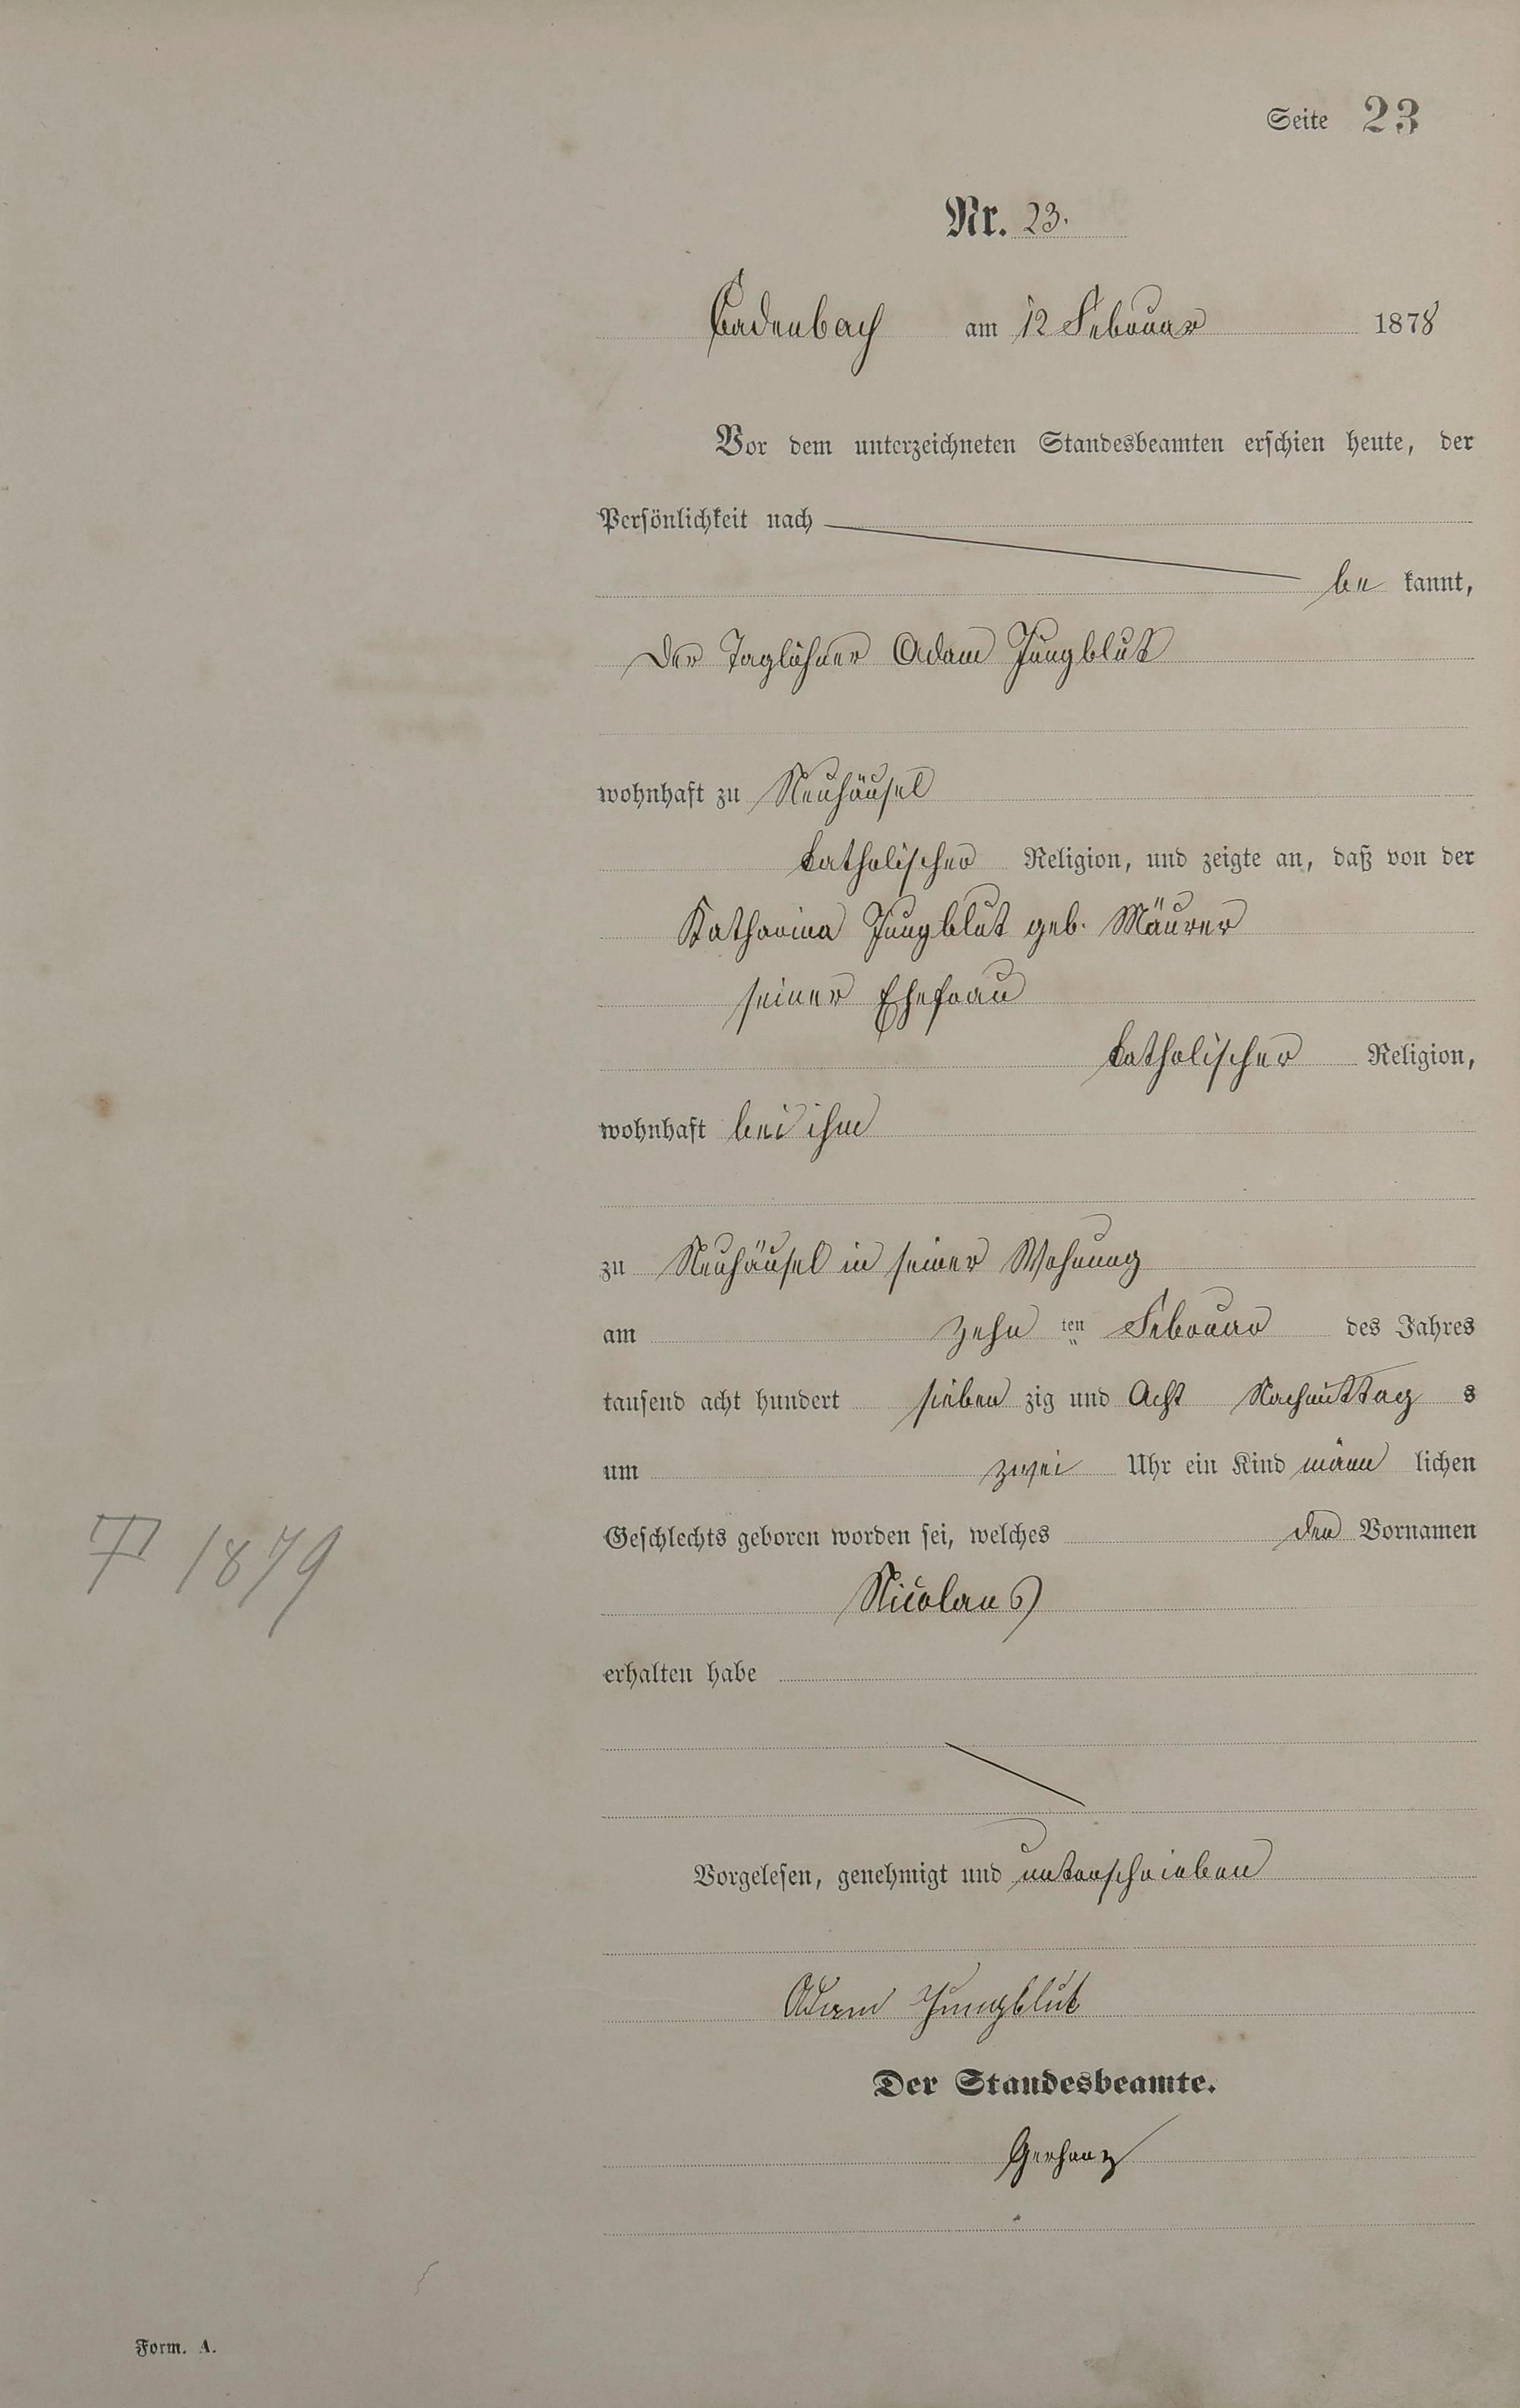 Seite 23
Nr. 23.
Cadenbach am 12 Februar 1878
Vor dem unterzeichneten Standesbeamten erschien heute, der
Persönlichkeit nach
be kannt,
der Taglöhner Adam Jungblut
wohnhaft zu Neuhäusel
katholischer Religion, und zeigte an, daß von der
Katharina Jungblut geb. Mäurer
seiner Ehefrau
katholischer Religion,
wohnhaft bei ihm
zu Neuhäusel in seiner Wohnung
am zehn ten Februar des Jahres
tausend acht hundert sieben zig und Acht Nachmittag s
um zwei Uhr ein Kind männ lichen
Geschlechts geboren worden sei, welches den Vornamen
Nicolaus
erhalten habe
1879
Vorgelesen, genehmigt und unterschrieben
Adam Jungblut
Der Standesbeamte.
Gerharz
Form. A.